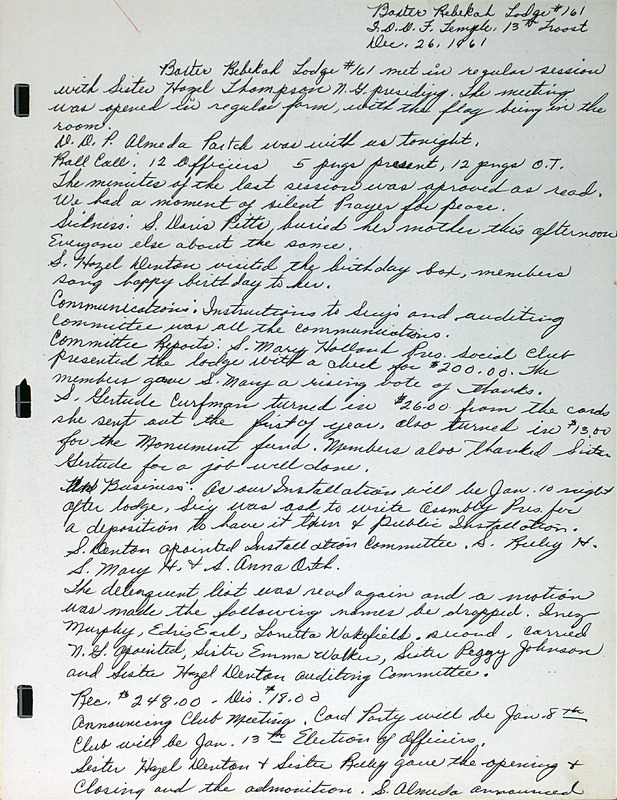 Baxter Rebekah Lodge #161
I.O.O.F. Temple, 13th Troost
Dec. 26, 1961
Baxter Rebekah Lodge #161 met in regular session
with Sister Hazel Thompson N.G. presiding. The meeting
was opened in regular form, with the flag being in the
room.
D.D.P. Almeda Partch was with us tonight.
Roll Call: 12 Officiers 5 pngs present, 12 pngs O.T.
The minutes of the last session was aproved as read.
We had a moment of silent Prayer for peace.
Sickness: S. Doris Pitts, buried her mother this afternoon
Everyone else about the same.
S. Hazel Denton visited the birthday box, members
sang happy birthday to her.
Communications: Instructions to Secy's and auditing
committee was all the communications.
Committee Reports: S. Mary Holland Pres. social Club
presented the lodge with a check for $200.00. The
members gave S. Mary a rising vote of thanks.
S. Gertude Curfman turned in $26.00 from the cards
she sent out the first of year, also turned in $13.00
for the Monument fund. Members also thanked Sister
Gertude for a job well done.
Business: As our Installation will be Jan. 10 night
after lodge, Secy was ask to write Assmbly Pres. for
a deposition to have it then & Public Installation.
S. Denton apointed Installation Committee. S. Ruley H.
S. Mary H. & S. Anna Orth.
The delinquent list was read again and a motion
was made the following names be dropped. Inez
Murphy, Edris Earl, Lonetta Wakefield. second, carried
N.G. apointed, Sister Emma Walker, Sister Peggy Johnson
and Sister Hazel Denton auditing Committee.
Rec. $248.00 - Dis. $18.00
Announcing Club Meeting. Card Party will be Jan. 8th
Club will be Jan. 13th Election of officirs.
Sister Hazel Denton & Sister Ruley gave the opening &
Closing and the admonition. S. Almeda announced